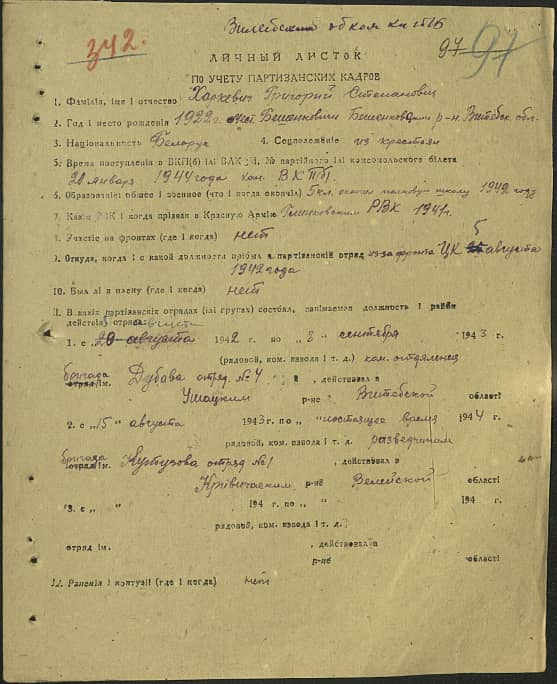 Вилейский обком КП(б)Б
342.
97 97
ЛИЧНЫЙ ЛИСТОК
ПО УЧЕТУ ПАРТИЗАНСКИХ КАДРОВ
1. Фамілія, імя і отчество Харкевич Григорий Степанович
2. Год і место рождения 1922 г. мест. Бешенковичи Бешенковичи р-н. Витебск. обл.
3. Національность Белорус 4. Соцположение из крестьян
5. Время поступления в ВКП(б) ілі ВЛКСМ, № партийного ілі комсомольского білета
20 января 1944 года кан. ВКП(б)
6. Образование: общее і военное (что і когда окончіл) 5 кл. окончил полковую школу 1942 году
7. Какім РВК і когда прізван в Красную Армію РВК 1941 г.
8. Участіе на фронтах (где і когда) нет
9. Откуда, когда і с какой должності прібыл в партізанскій отряд из-за фронта ЦК 5 августа
1942 года
10. Был лі в плену (где і когда) нет
11. В какіх партізанскіх отрядах (ілі групах) состоял, занімаемая должность і район
действія отряда: августа
1. с „20 августа 1942 г. по „8 „ сентября 1943 г.
(рядовой, ком. взвода і т. д.) ком. отделения
бригада
отряд ім. Дубава отряд № 4 , действовал в
Ушацким р-не Витебской області
2. с „15„ августа 1943 г. по „ „настоящее время 1944 г.
рядовой, ком. взвода і т. д. разведчиком
бригада
отряд ім. Кутузова отряд № 1 , действовал в
Кривичским р-не Велейской області
3. с „ „ 194 г. по „ „ 194 г.
(рядовой, ком. взвода і т. д.)
отряд ім. , действовал в
р-не області
12. Раненія і контузіі (где і когда) нет